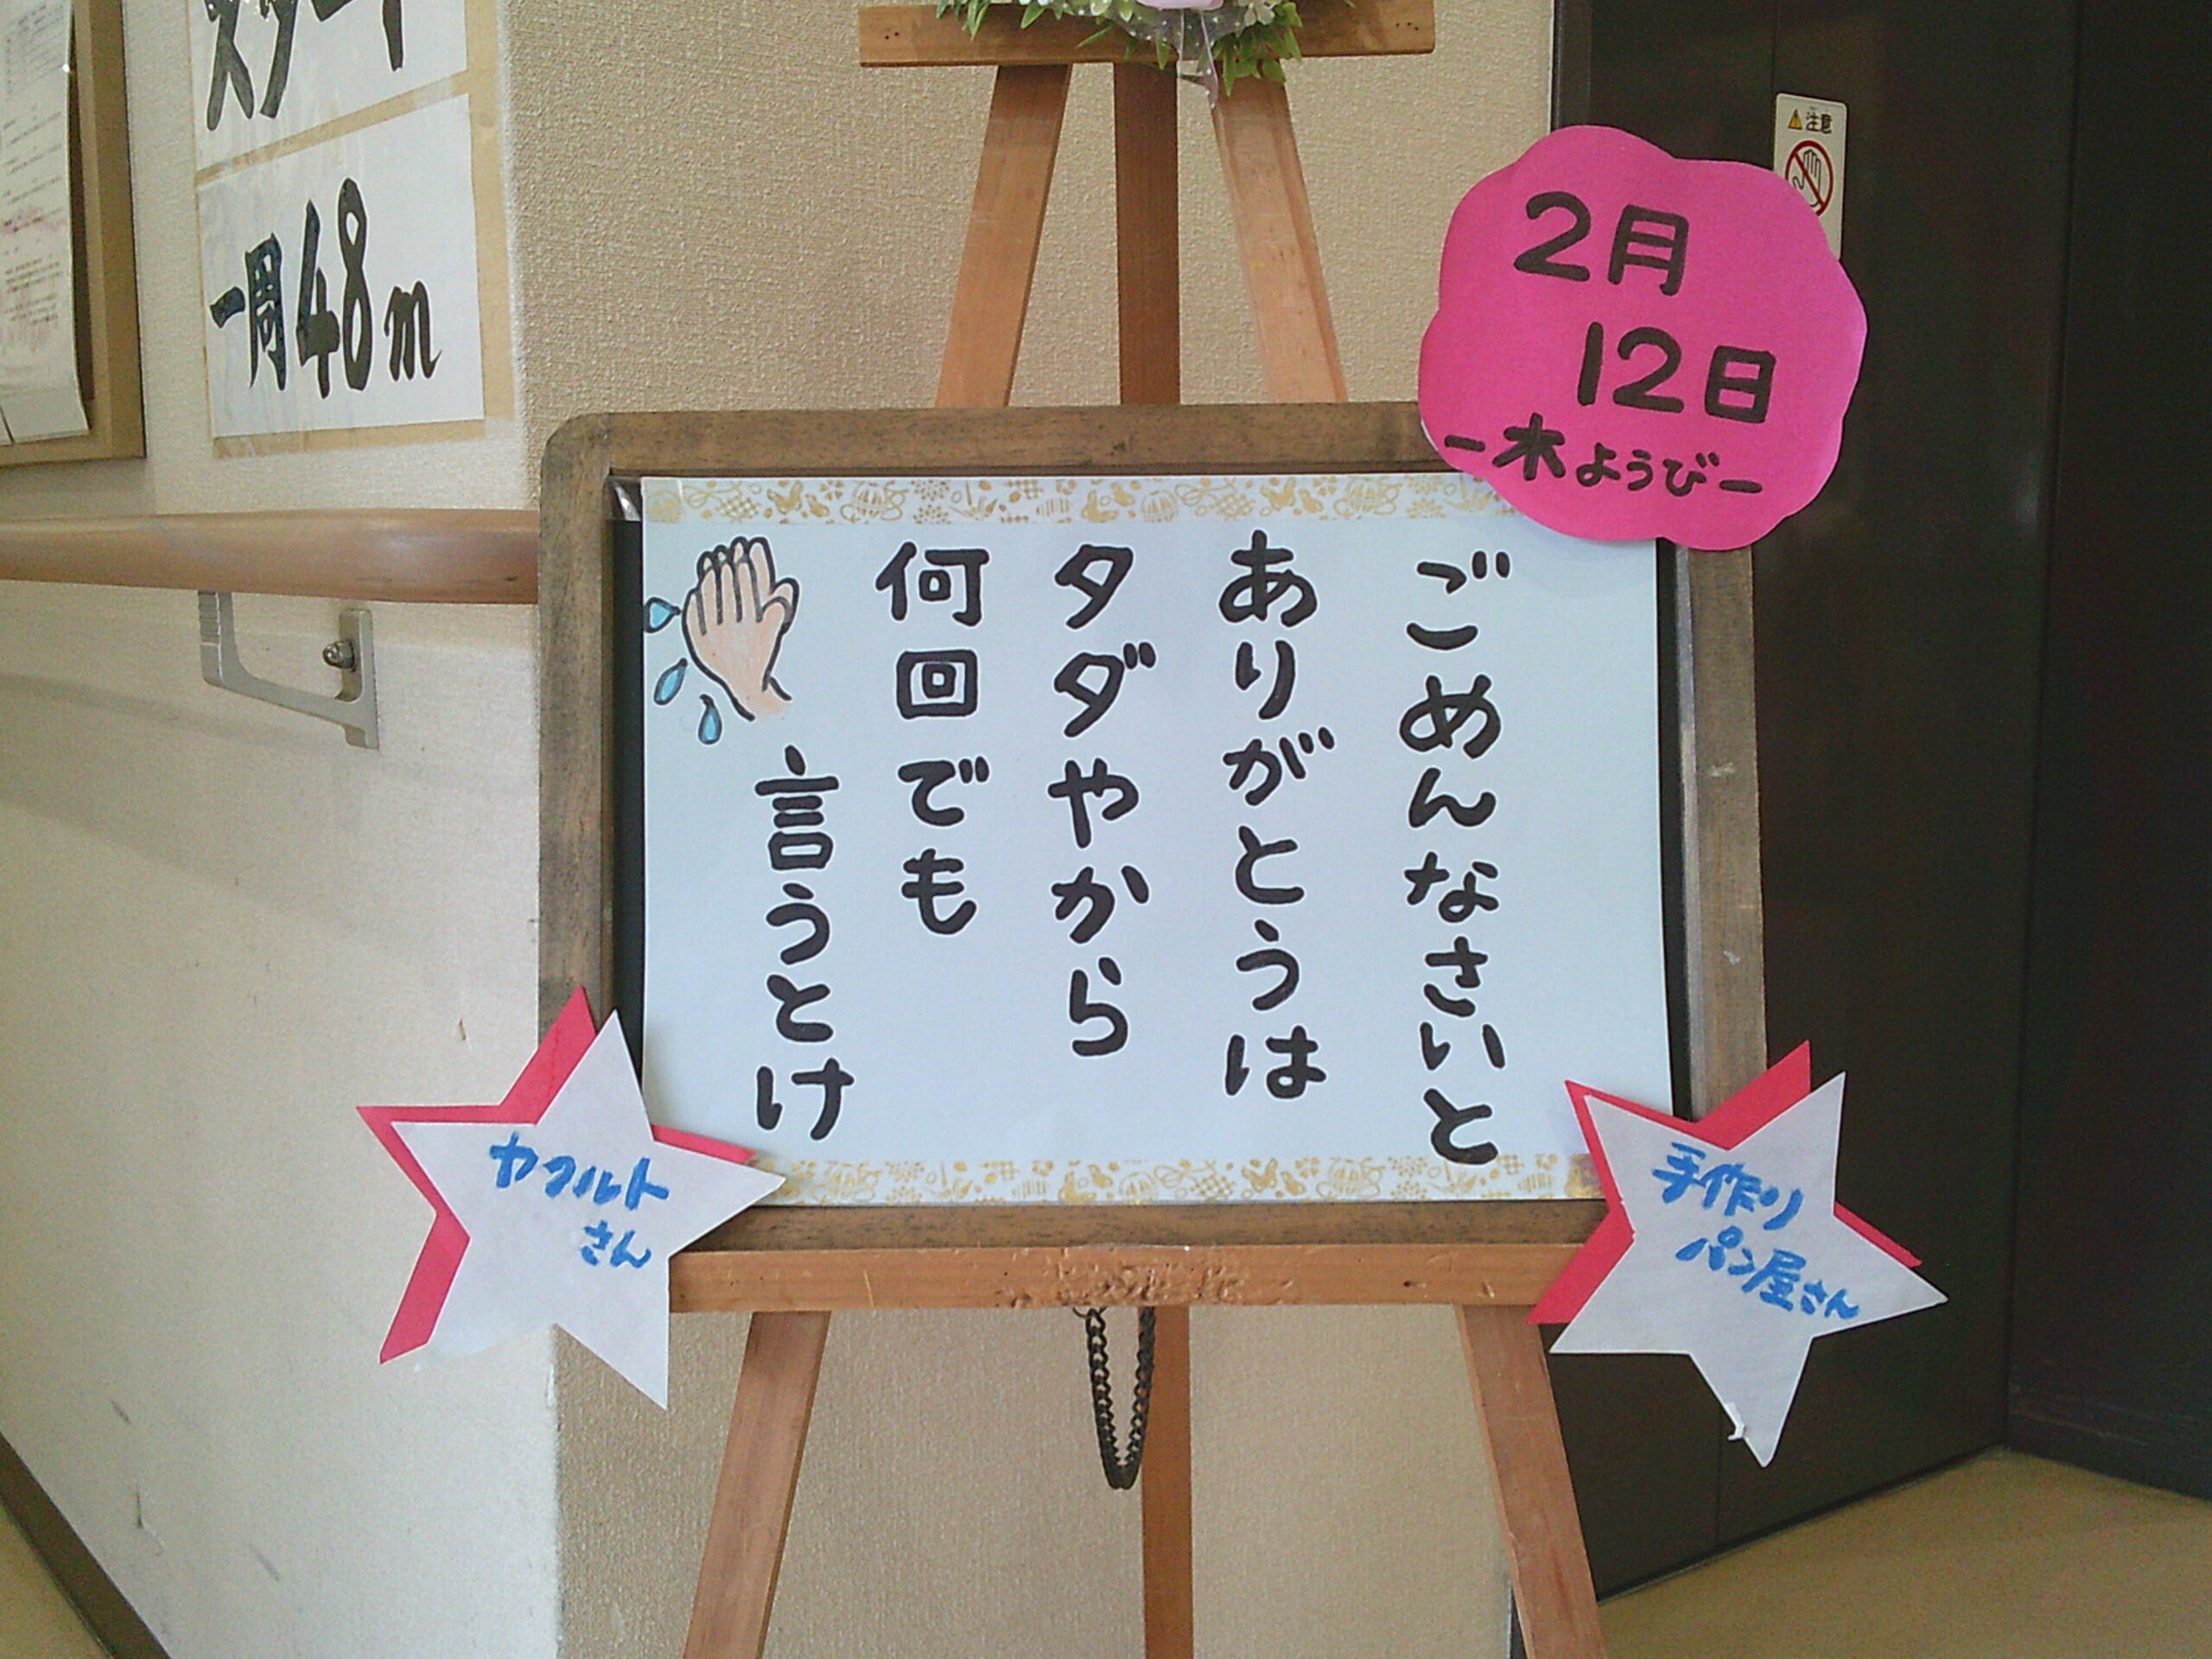 スタート
一周48m
注意
2月
12日
ー木ようびー
ごめんなさいと
ありがとうは
タダやから
何回でも
言うとけ
ヤクルト
さん
手作り
パン屋さん